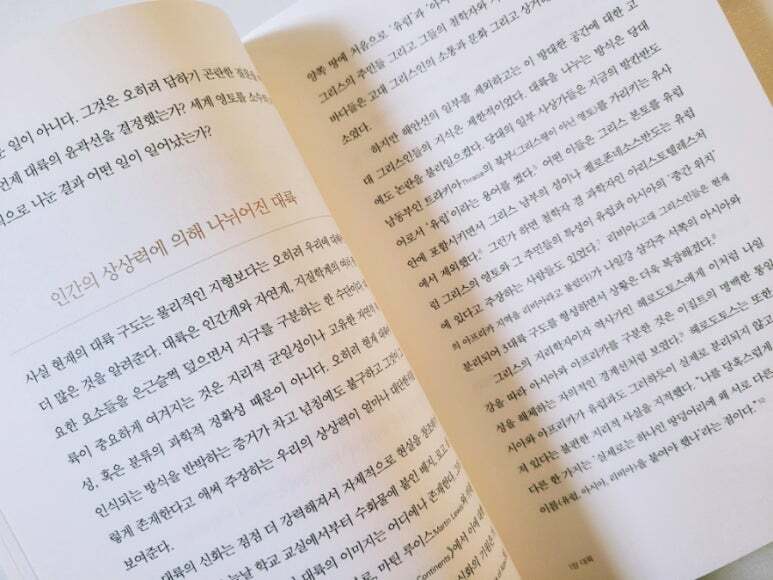 일이 아니다. 그것은 오히려 답하기 곤란한 질문을
언제 대륙의 윤곽선을 결정했는가? 세계 영토를
으로 나눈 결과 어떤 일이 일어났는가?
인간의 상상력에 의해 나뉘어진 대륙
사실 현재의 대륙 구도는 물리적인 지형보다는 오히려 우리에 대해
더 많은 것을 알려준다. 대륙은 인간계와 자연계, 지질학계의
요한 요소들을 은근슬쩍 덮으면서 지구를 구분하는 한 수단이다.
륙이 중요하게 여겨지는 것은 지리적 균일성이나 고유한 자연적
성, 혹은 분류의 과학적 정확성 때문이 아니다. 오히려 현재
인식되는 방식을 반박하는 증거가 차고 넘침에도 불구하고
렇게 존재한다고 애써 주장하는 우리의 상상력이 얼마나 대단한
보여준다.
대륙의 신화는 점점 더 강력해져서 자체적으로 현실을
늘날 학교 교실에서부터 수화물에 붙인
대륙의 이미지는 어디에나 존재한다.
마틴 루이스Martin Lewis와
Continents》에서 이에 대해
신화의 기원은
앞쪽 땅에 처음으로 '유럽'과
그리스의 주민들 그리고 그들의 철학자와
바다들은 고대 그리스인의 소통과 문화 그리고 상거래
소였다.
하지만 해안선의 일부를 제외하고는 이 방대한 공간에 대한 고
대 그리스인들의 지식은 제한적이었다. 대륙을 나누는 방식은 당대
에도 논란을 불러일으켰다. 당대의 일부 사상가들은 지금의 발칸반도
남동부인 트라키아Thracia의 북부(그리스령이 아닌 영토)를 가리키는 유사
어로서 '유럽'이라는 용어를 썼다. 어떤 이들은 그리스 본토를 유럽
안에 포함시키면서 그리스 남부의 섬이나 펠로폰네소스반도는 유럽
에서 제외했다. 그런가 하면 철학자 겸 과학자인 아리스토텔레스처
럼 그리스의 영토와 그 주민들의 특성이 유럽과 아시아의 '중간 위치'
에 있다고 주장하는 사람들도 있었다. 리비아(고대 그리스인들은 현재
의 아프리카 지역을 리비아라고 불렀다)가 나일강 삼각주 서쪽의 아시아와
분리되어 3대륙 구도를 형성하면서 상황은 더욱 복잡해졌다.
그리스의 지리학자이자 역사가인 헤로도토스에게 이처럼 나일
강을 따라 아시아와 아프리카를 구분한 것은 이집트의 명백한 통일
성을 해체하는 자의적인 경계선처럼 보였다. 헤로도토스는 또한
시아와 아프리카가 유럽과도 그러하듯이 실제로 분리되지 않고
져 있다는 불편한 지리적 사실을 지적했다. "나를 당혹스럽게
다른 한 가지는 '실제로는 하나인 땅덩어리에 왜 서로 다른
이름(유럽, 아시아, 리비아)을 붙여야 했나'라는 점이다."
1장 대륙